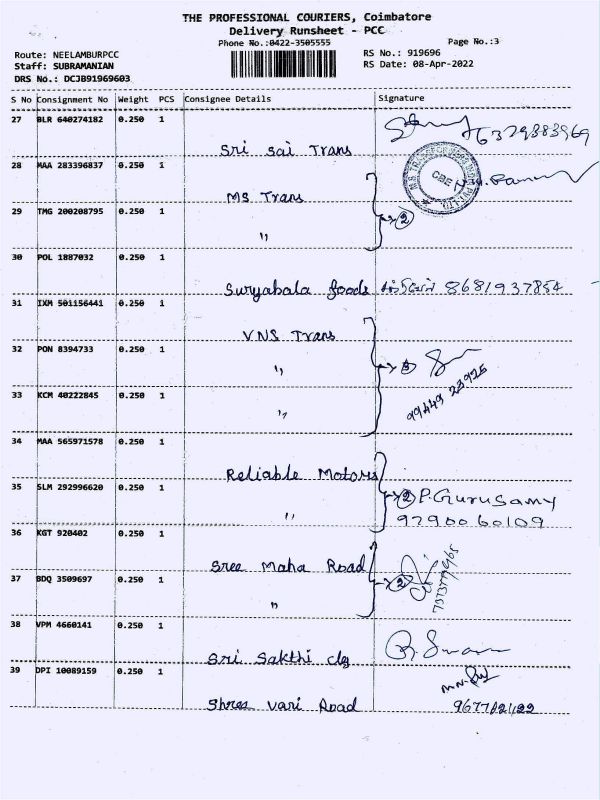 THE PROFESSIONAL COURIERS, Coimbatore
Delivery Runsheet - PCC
Phone No.:0422-3505555
Page No.:3
Route: NEELAMBURPCC
RS No.: 919696
Staff: SUBRAMANIAN
RS Date: 08-Apr-2022
DRS No.: DCJB91969603
S No Consignment No Weight PCS Consignee Details Signature
27 BLR 640274182 0.250 1
Sri Sai Trans 6379383969
28 MAA 283396837 0.250 1
MS Trans
CBE
29 TMG 200208795 0.250 1
" 2
30 POL 1887032 0.250 1
Suryabala foods 8681937854
31 IXM 501156441 0.250 1
VNS Trans
32 PON 8394733 0.250 1
" 3
99449 23925
33 KCM 40222845 0.250 1
"
34 MAA 565971578 0.250 1
Reliable Motors
35 SLM 292996620 0.250 1
" 2 P.Gurusamy
9790060109
36 KGT 920402 0.250 1
Sree Maha Road
37 BDQ 3509697 0.250 1
" 2
38 VPM 4660141 0.250 1
Sri Sakthi clg
39 DPI 10089159 0.250 1
Shree Vari Road